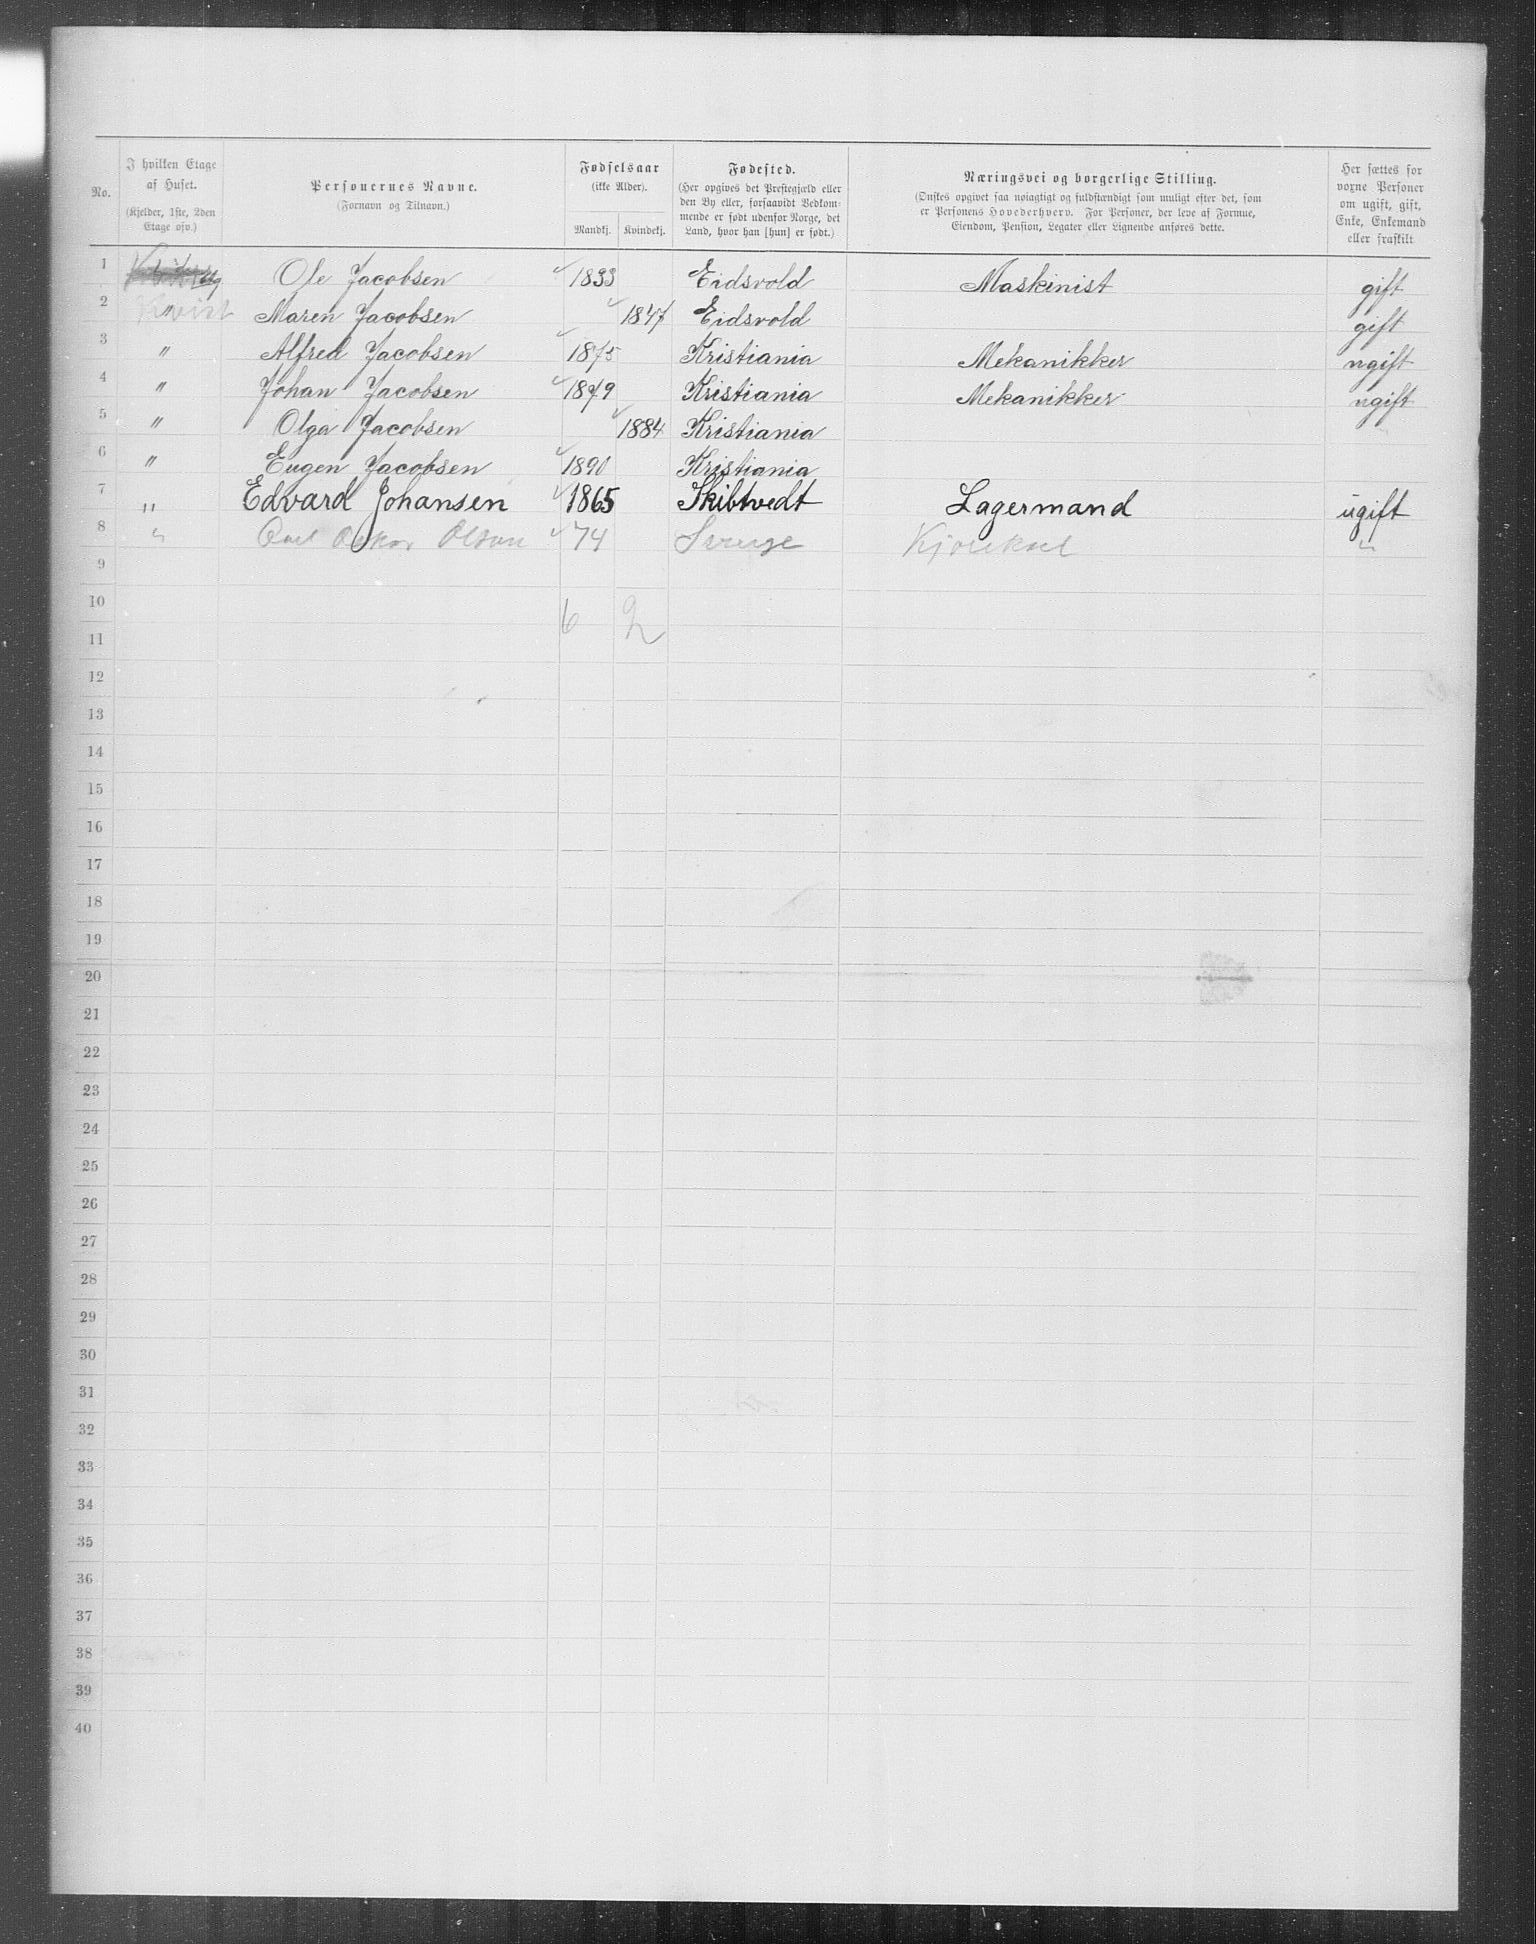 No.
I hvilken Etage
af Huset.
(Kjelder, 1ste, 2den
Etage osv.)
Personernes Navne.
(Fornavn og Tilnavn.)
Fødselsaar
(ikke Alder).
Mandkj. Kvindekj.
Fødested.
(Her opgives det Prestegjæld eller
den By eller, forsaavidt Vedkom-
mende er født udenfor Norge, det
Land, hvor han [hun] er født.)
Næringsvei og borgerlige Stilling.
(Ønskes opgivet saa nøiagtigt og fuldstændigt som muligt efter det, som
er Personens Hovederhverv. For Personer, der leve af Formue,
Eiendom, Pension, Legater eller Lignende anføres dette.
Her sættes for
voxne Personer
om ugift, gift,
Enke, Enkemand
eller fraskilt
1 Ole Jacobsen 1833 Eidsvold Maskinist gift
2 Kvist Maren Jacobsen 1847 Eidsvold gift
3 " Alfred Jacobsen 1875 Kristiania Mekanikker ugift
4 " Johan Jacobsen 1879 Kristiania Mekanikker ugift
5 " Olga Jacobsen 1884 Kristiania
6 " Eugen Jacobsen 1890 Kristiania
7 " Edvard Johansen 1865 Skibtvedt Lagermand ugift
8 " Carl Oskar Olsen 74 "
9
10 6 2
11
12
13
14
15
16
17
18
19
20
21
22
23
24
25
26
27
28
29
30
31
32
33
34
35
36
37
38
39
40